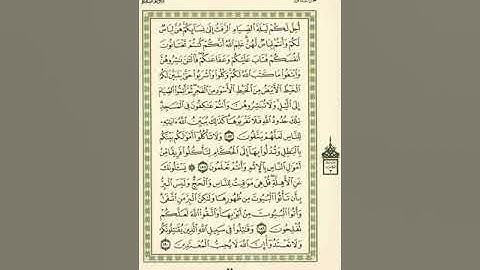 أُحِلَّ لَكُمْ لَيْلَةَ ٱلصِّيَامِ ٱلرَّفَثُ إِلَىٰ نِسَآئِكُمْ هُنَّ لِبَاسٌ
لَّكُمْ وَأَنتُمْ لِبَاسٌ لَّهُنَّ عَلِمَ ٱللَّهُ أَنَّكُمْ كُنتُمْ تَخْتَانُونَ
أَنفُسَكُمْ فَتَابَ عَلَيْكُمْ وَعَفَا عَنكُمْ فَٱلْـَٰٔنَ بَـٰشِرُوهُنَّ
وَٱبْتَغُوا۟ مَا كَتَبَ ٱللَّهُ لَكُمْ وَكُلُوا۟ وَٱشْرَبُوا۟ حَتَّىٰ يَتَبَيَّنَ لَكُمُ
ٱلْخَيْطُ ٱلْأَبْيَضُ مِنَ ٱلْخَيْطِ ٱلْأَسْوَدِ مِنَ ٱلْفَجْرِ ثُمَّ أَتِمُّوا۟ ٱلصِّيَامَ
إِلَى ٱلَّيْلِ وَلَا تُبَـٰشِرُوهُنَّ وَأَنتُمْ عَـٰكِفُونَ فِى ٱلْمَسَـٰجِدِ
تِلْكَ حُدُودُ ٱللَّهِ فَلَا تَقْرَبُوهَا كَذَٰلِكَ يُبَيِّنُ ٱللَّهُ ءَايَـٰتِهِۦ
لِلنَّاسِ لَعَلَّهُمْ يَتَّقُونَ ١٨٧ وَلَا تَأْكُلُوٓا۟ أَمْوَٰلَكُم بَيْنَكُم
بِٱلْبَـٰطِلِ وَتُدْلُوا۟ بِهَآ إِلَى ٱلْحُكَّامِ لِتَأْكُلُوا۟ فَرِيقًا مِّنْ
أَمْوَٰلِ ٱلنَّاسِ بِٱلْإِثْمِ وَأَنتُمْ تَعْلَمُونَ ١٨٨ ۞ يَسْـَٔلُونَكَ
عَنِ ٱلْأَهِلَّةِ قُلْ هِىَ مَوَٰقِيتُ لِلنَّاسِ وَٱلْحَجِّ وَلَيْسَ ٱلْبِرُّ
بِأَن تَأْتُوا۟ ٱلْبُيُوتَ مِن ظُهُورِهَا وَلَـٰكِنَّ ٱلْبِرَّ مَنِ ٱتَّقَىٰ
وَأْتُوا۟ ٱلْبُيُوتَ مِنْ أَبْوَٰبِهَا وَٱتَّقُوا۟ ٱللَّهَ لَعَلَّكُمْ
تُفْلِحُونَ ١٨٩ وَقَـٰتِلُوا۟ فِى سَبِيلِ ٱللَّهِ ٱلَّذِينَ يُقَـٰتِلُونَكُمْ
وَلَا تَعْتَدُوٓا۟ إِنَّ ٱللَّهَ لَا يُحِبُّ ٱلْمُعْتَدِينَ ١٩٠